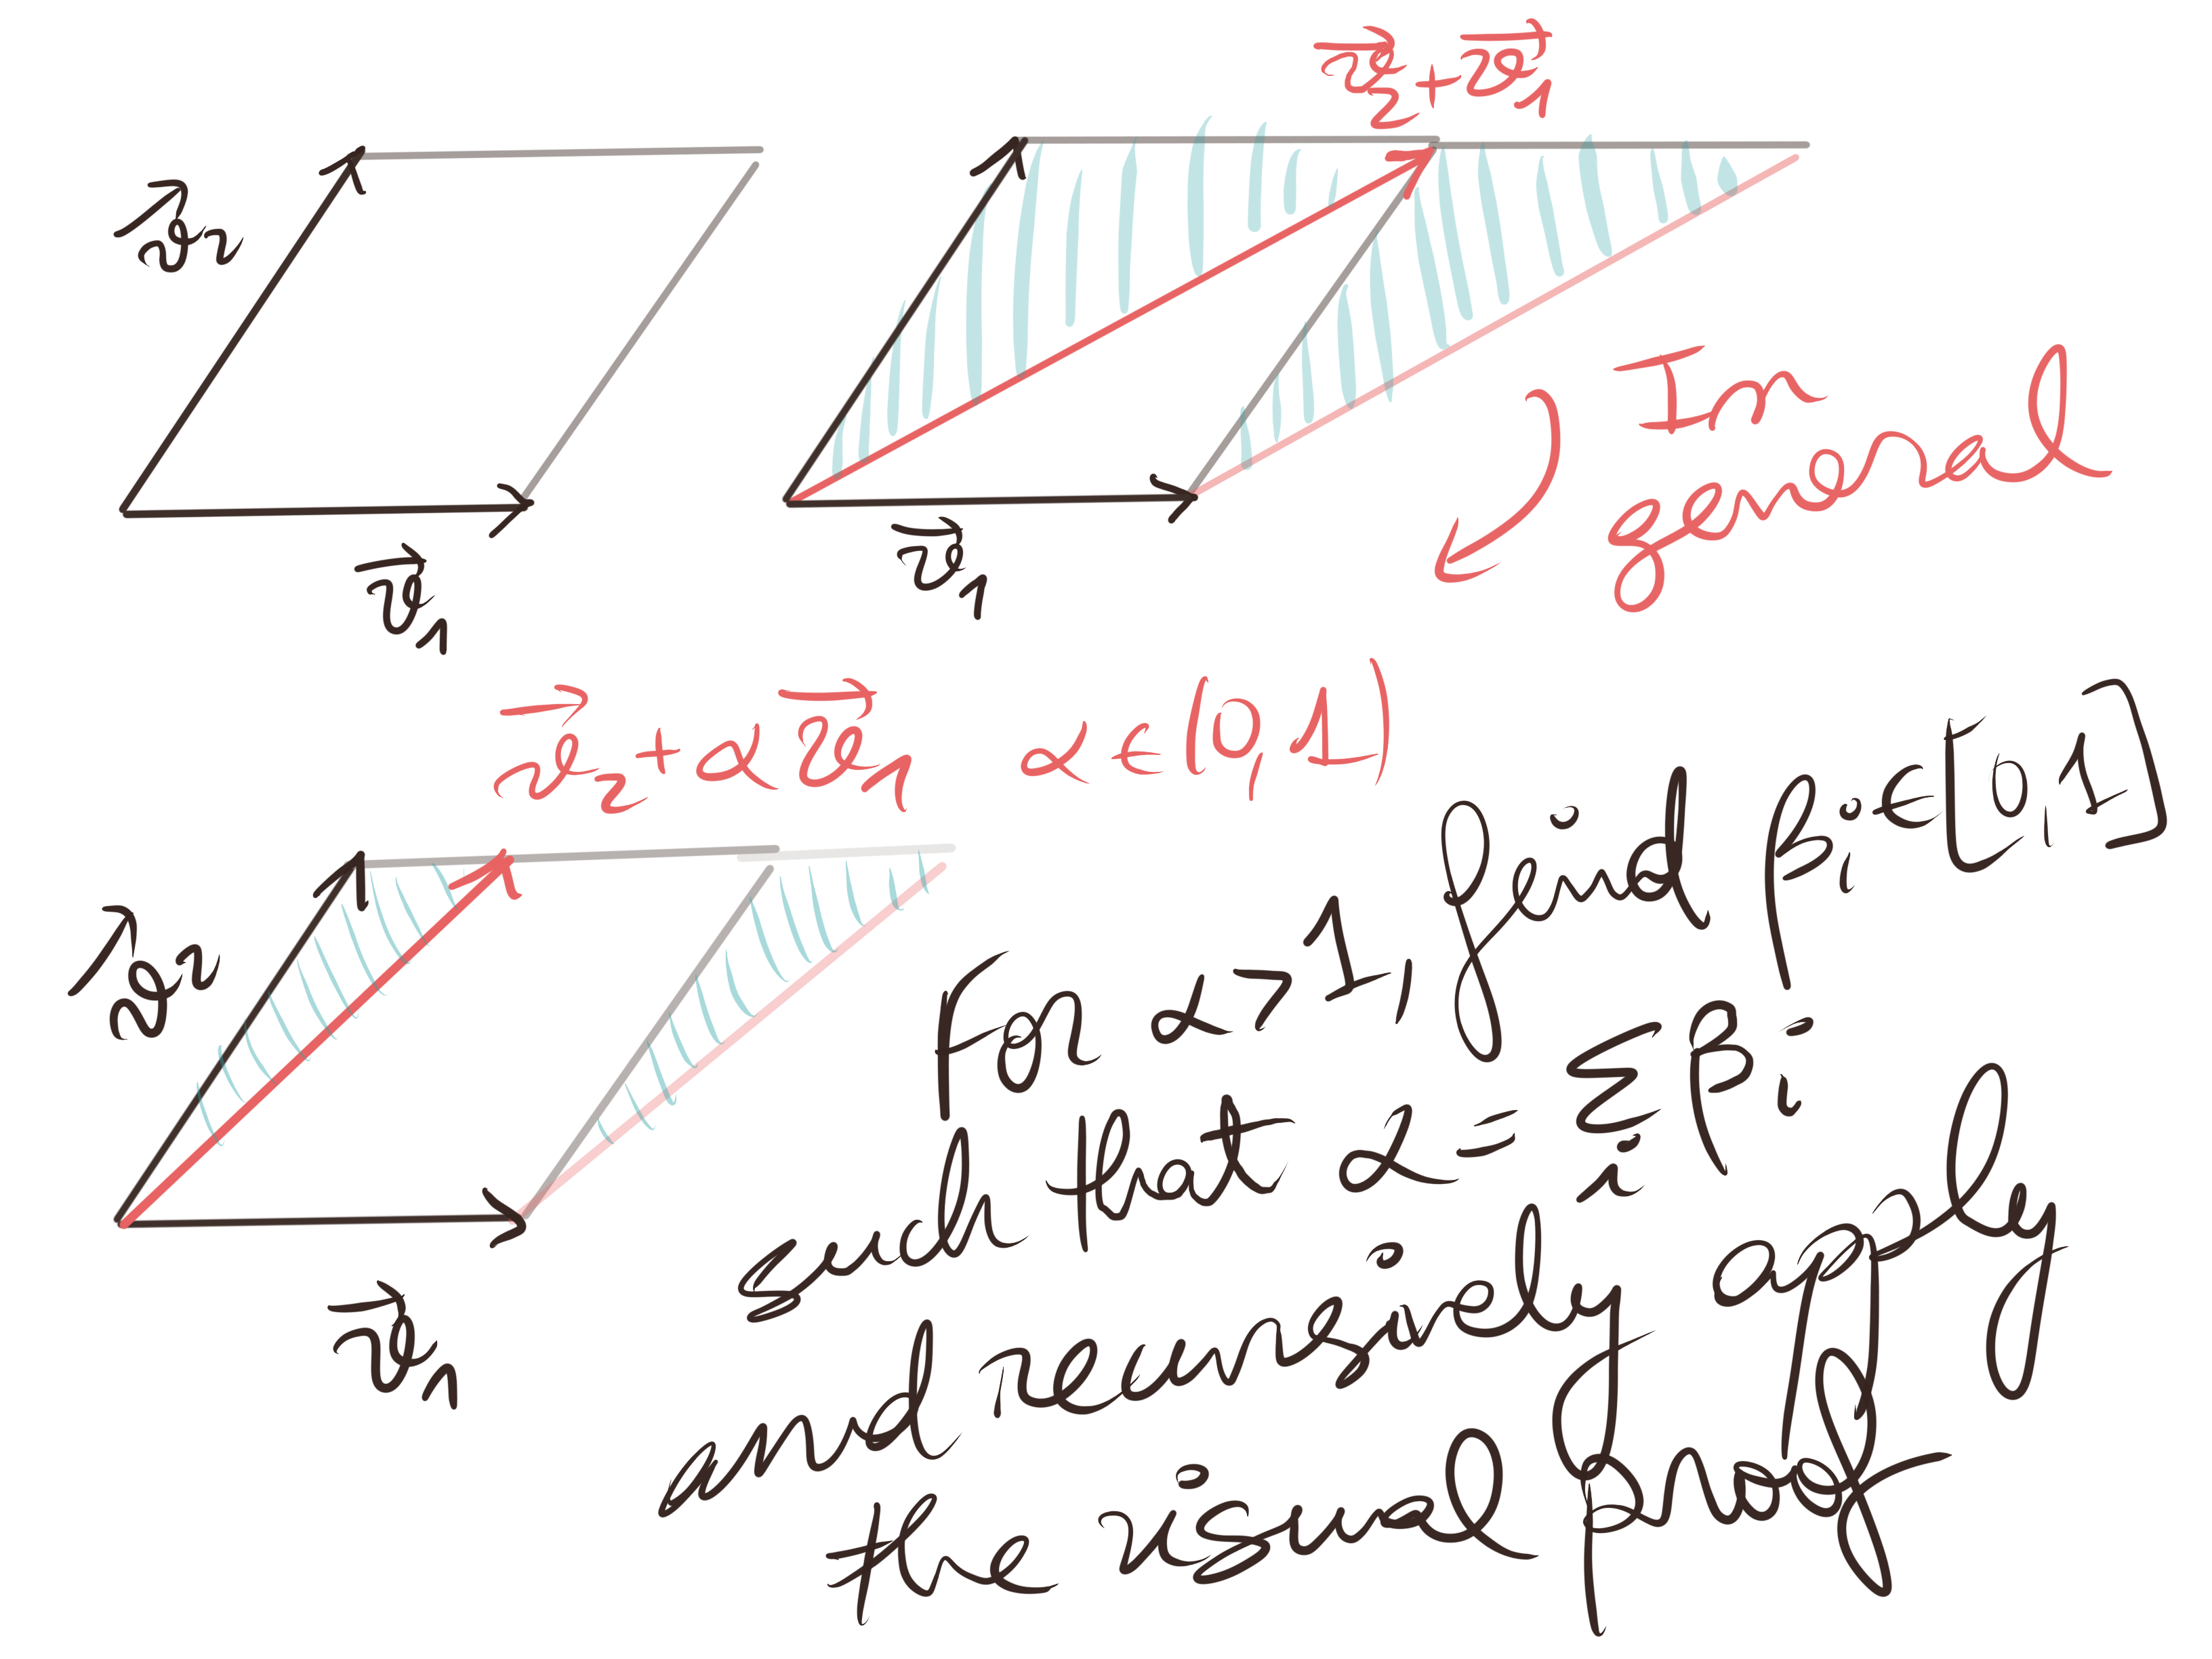 v⃗₂
v⃗₁
v⃗₂ + v⃗₁
v⃗₁
In
general
v⃗₂ + αv⃗₁ α ∈ (0,1)
v⃗₂
v⃗₁
For α > 1, find βᵢ ∈ [0,1]
such that α = Σᵢ βᵢ
and recursively apply
the visual proof